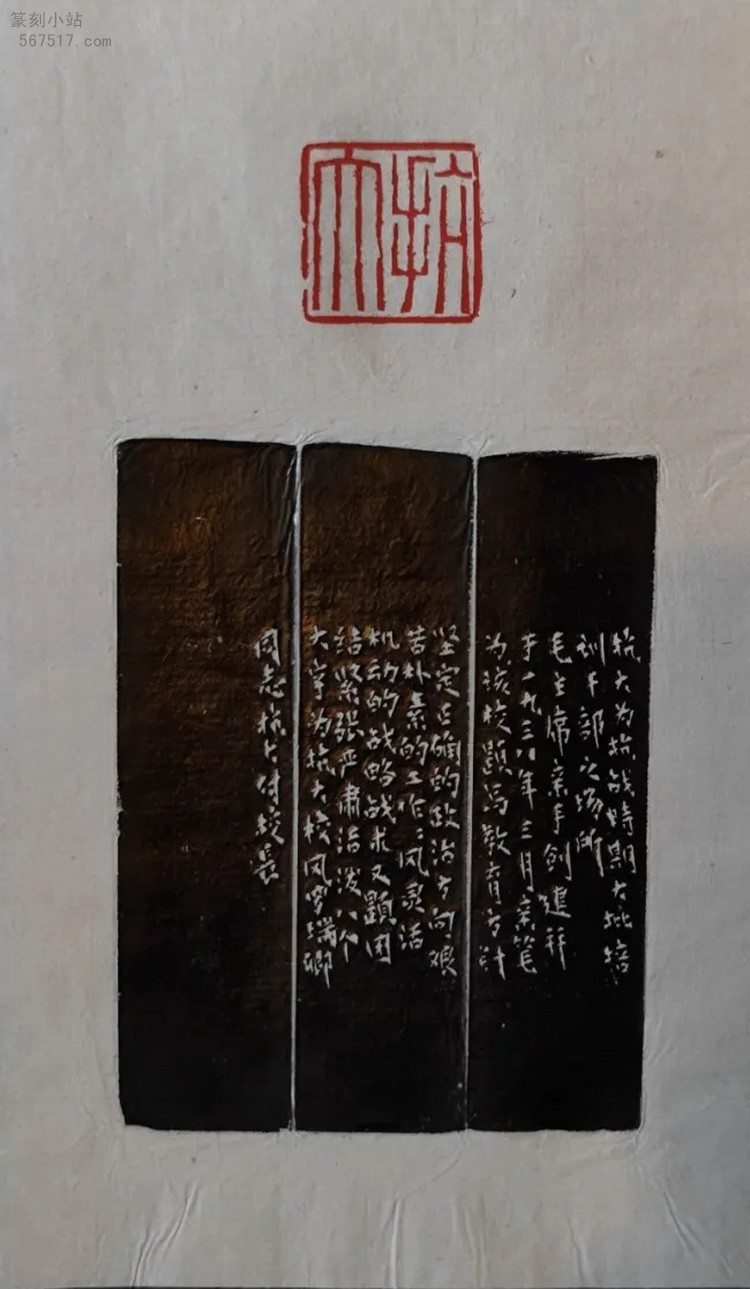 篆刻小站
567517.com
抗大
抗大为抗战时期大批培
训干部之场所
毛主席亲手创建并
于一九三八年三月亲笔
为该校题写教育方针
坚定正确的政治方向艰
苦朴素的工作作风灵活
机动的战略战术又题团
结紧张严肃活泼八个
大字为抗大校风罗瑞卿
同志抗大付校长